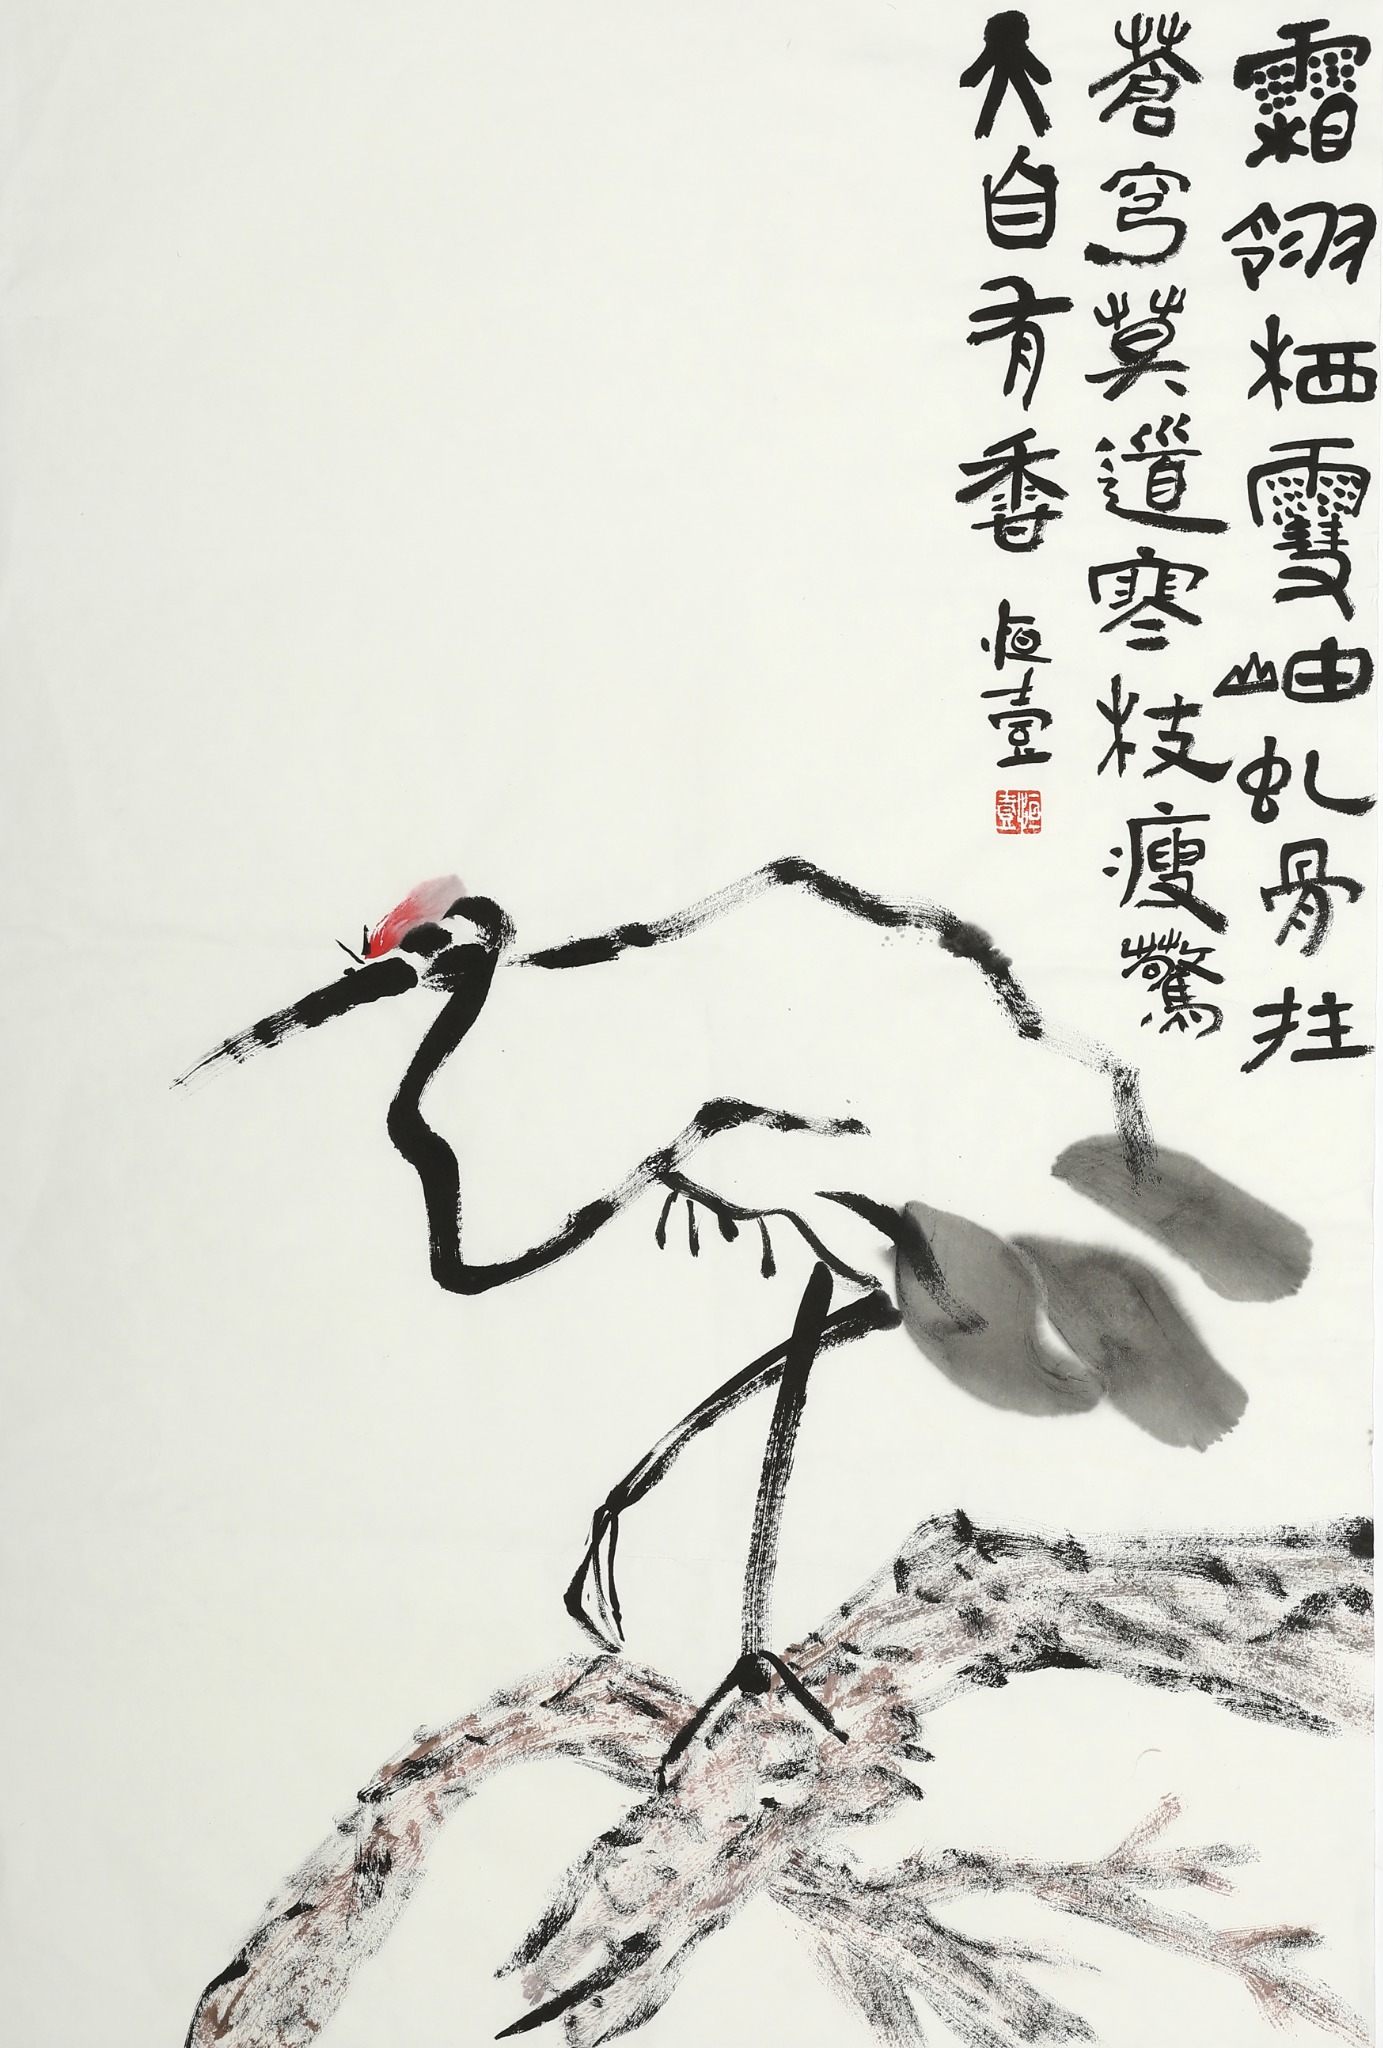 霜翎栖雪岫虬骨拄
蒼穹莫道寒枝瘦驚
天自有香
恒壹
恒壹